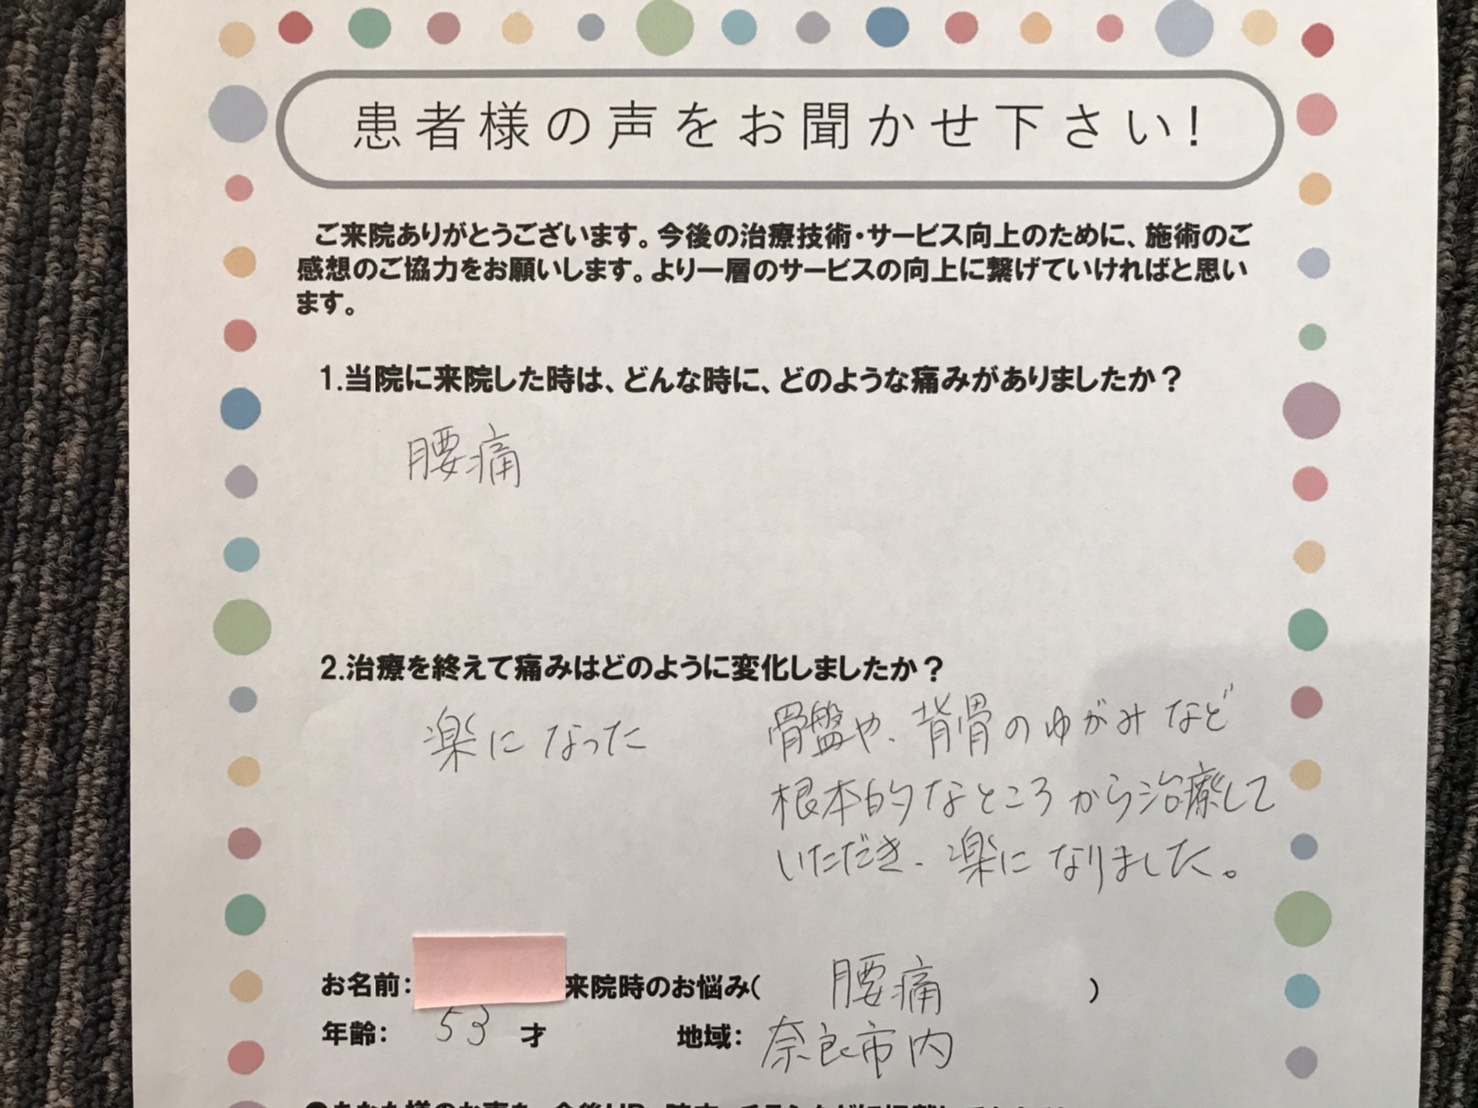 患者様の声をお聞かせ下さい!
ご来院ありがとうございます。今後の治療技術・サービス向上のために、施術のご
感想のご協力をお願いします。より一層のサービスの向上に繋げていければと思い
ます。
1.当院に来院した時は、どんな時に、どのような痛みがありましたか?
腰痛
2.治療を終えて痛みはどのように変化しましたか?
楽になった
骨盤や、背骨のゆがみなど
根本的なところから治療して
いただき、楽になりました。
お名前: 来院時のお悩み( 腰痛 )
年齢: 53 才 地域: 奈良市内